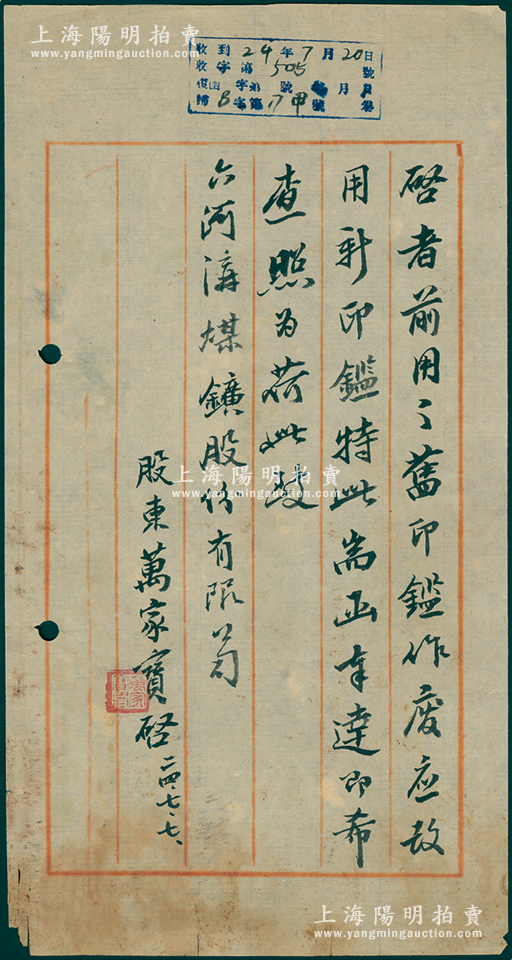 上海陽明拍賣
www.yangmingauction.com
收到24年7月20日
收字第505號
復函 字第 號 月
歸B字第17甲號
啓者前用之舊印鑑作廢應啟
用新印鑑特此耑函奉達即希
查照為荷此致
六河溝煤鑛股份有限公司
股東萬家寶啓 二四、七、七、
上海陽明拍賣
www.yangmingauction.com
上海陽明拍賣
www.yangmingauction.com